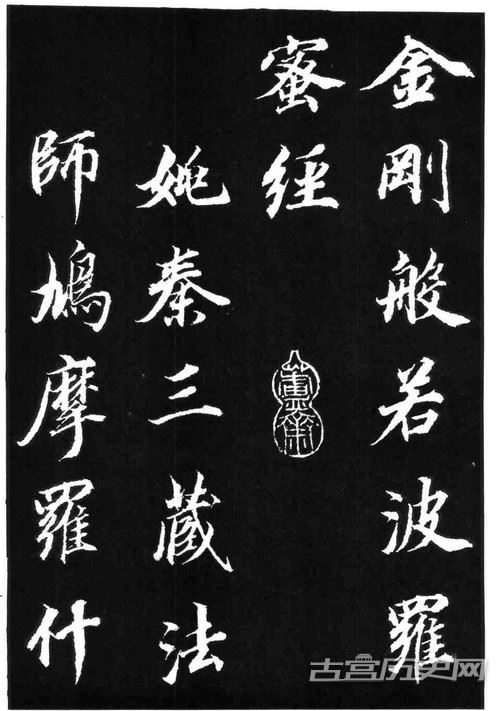 金剛般若波羅
蜜經
姚秦三藏法
師鳩摩羅什
古宫历史网